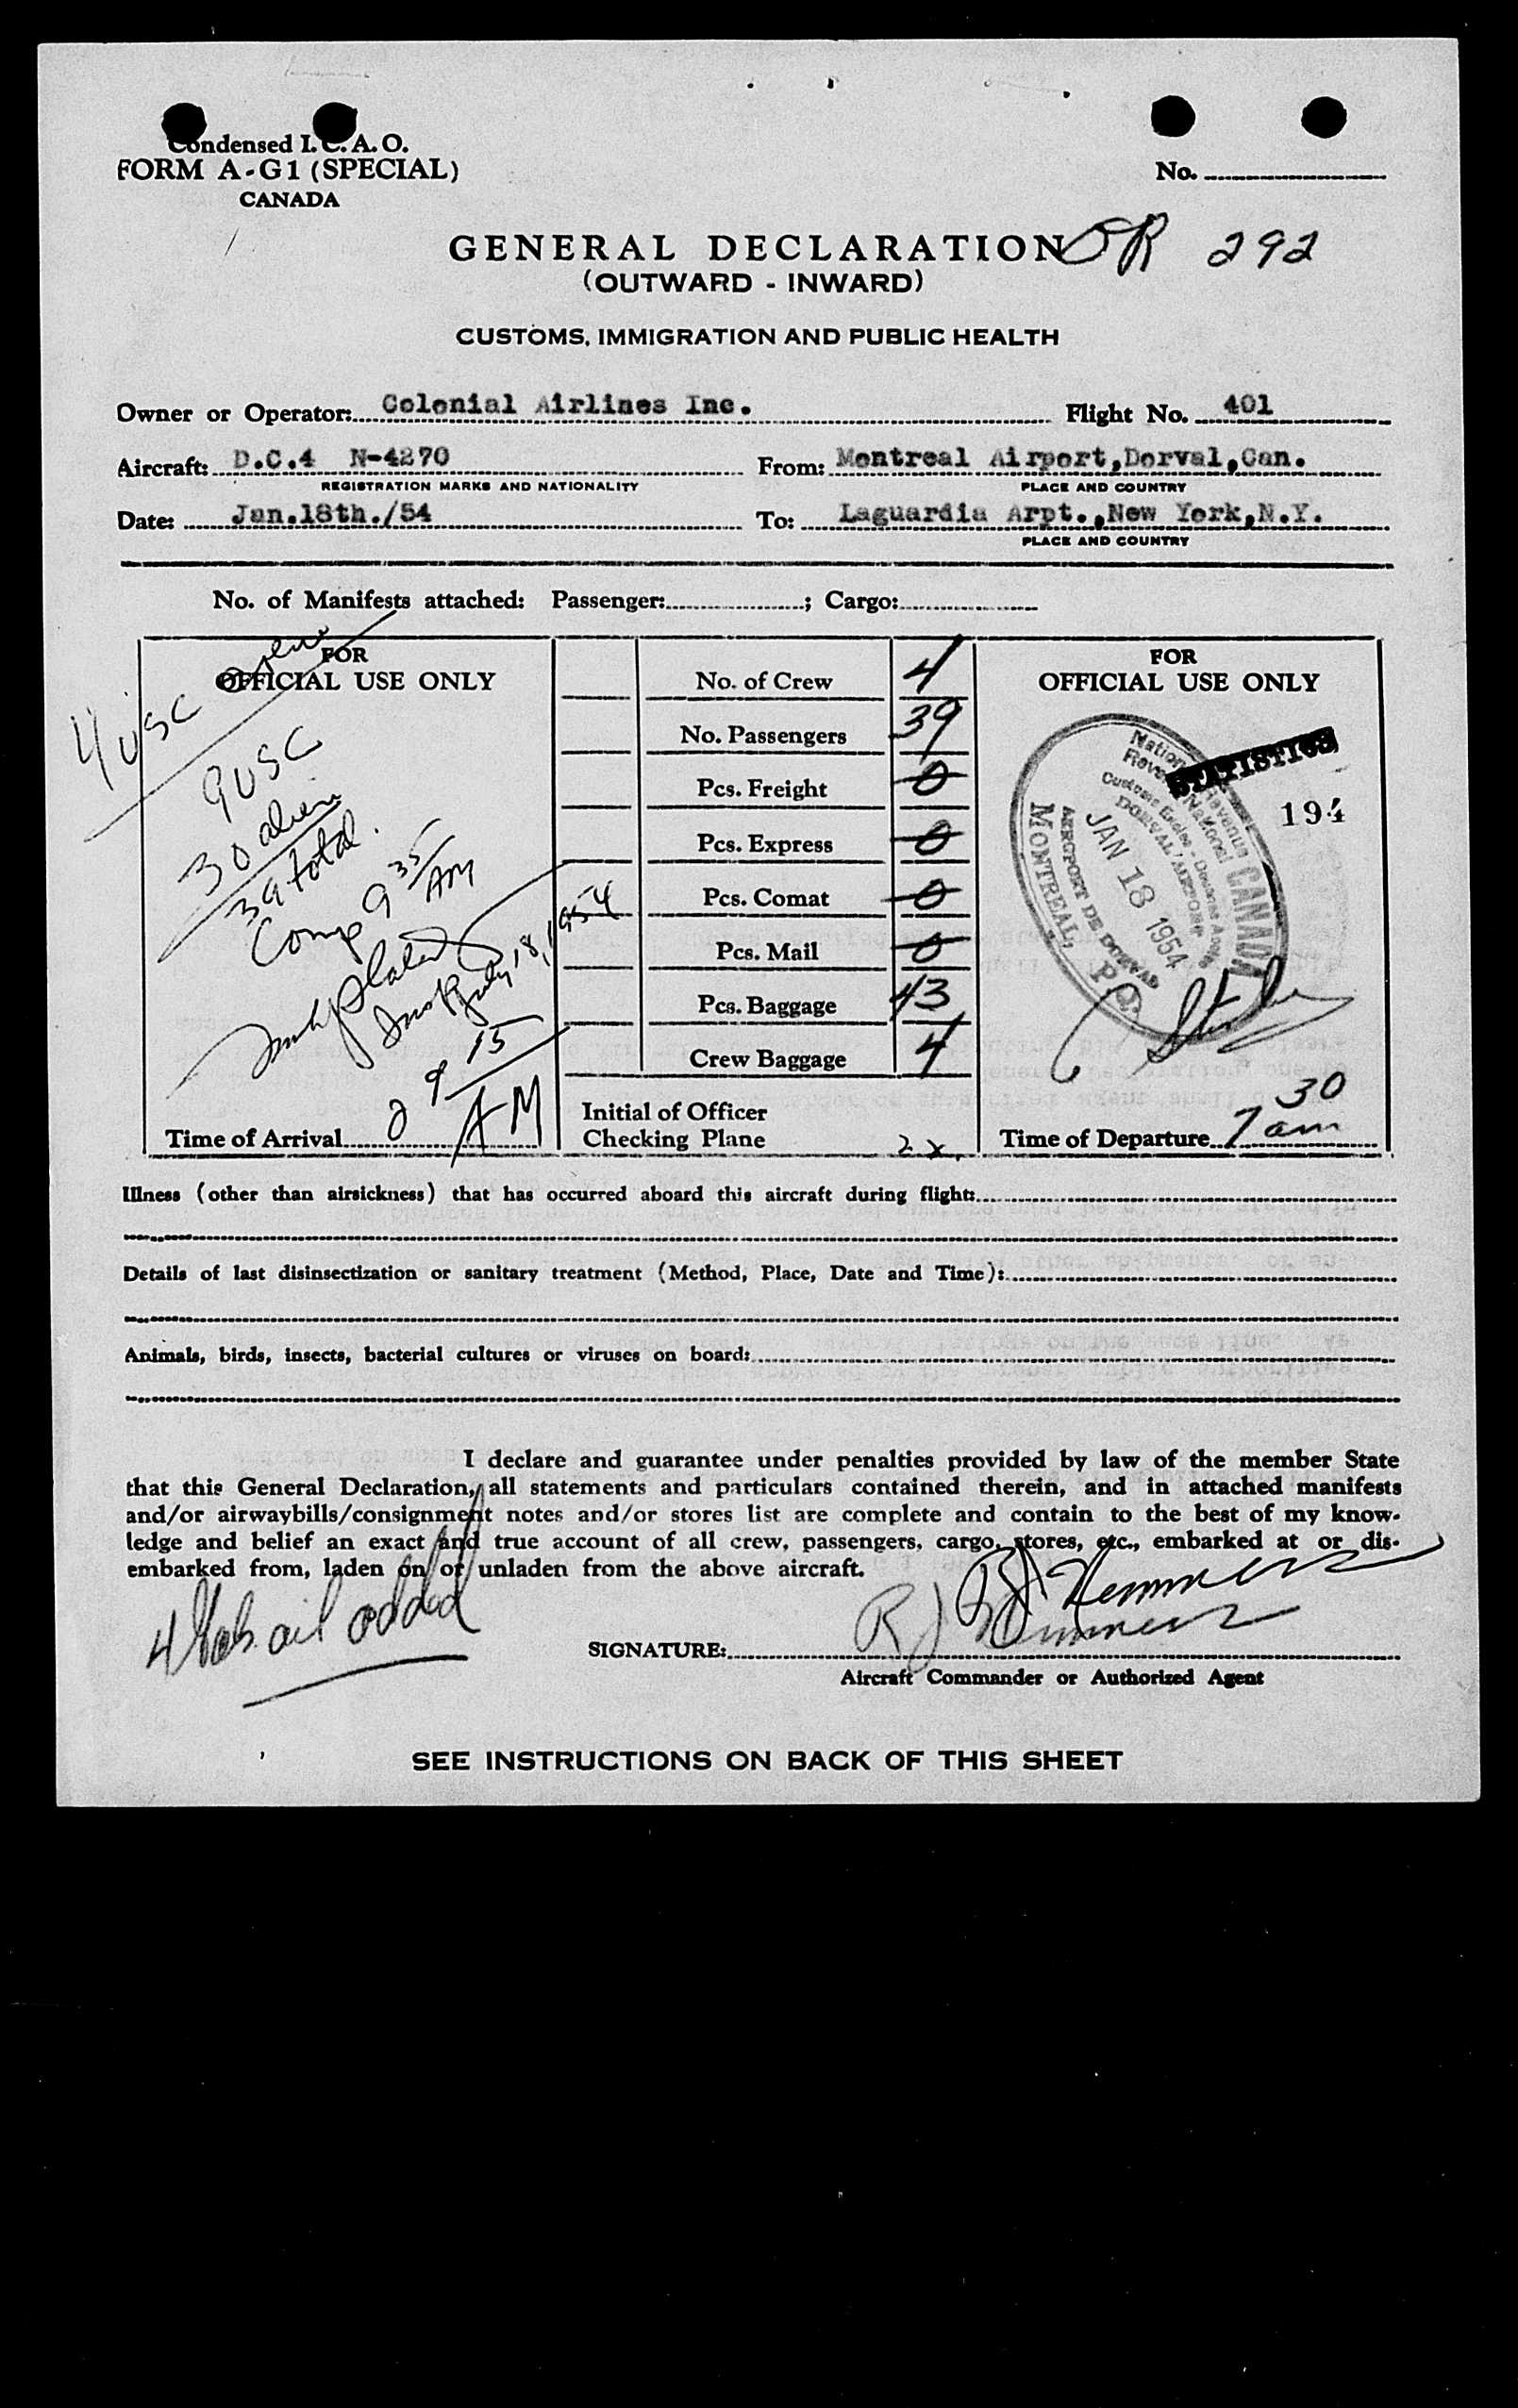 Condensed I.C.A.O.
FORM A-G1 (SPECIAL)
CANADA
No.
GENERAL DECLARATION
OR 292
(OUTWARD - INWARD)
CUSTOMS, IMMIGRATION AND PUBLIC HEALTH
Owner or Operator: Colonial Airlines Inc. Flight No. 401
Aircraft: D.C.4 N-4270 From: Montreal Airport,Dorval,Can.
REGISTRATION MARKS AND NATIONALITY PLACE AND COUNTRY
Date: Jan.18th./54 To: Laguardia Arpt.,New York,N.Y.
PLACE AND COUNTRY
No. of Manifests attached: Passenger: ; Cargo:
FOR
OFFICIAL USE ONLY
4 USC
9 USC
30 alien
39 total
Comp 9 35 AM
Insp
18, 1954
9 15 AM
Time of Arrival
No. of Crew 4
No. Passengers 39
Pcs. Freight 0
Pcs. Express 0
Pcs. Comat 0
Pcs. Mail 0
Pcs. Baggage 43
Crew Baggage 4
Initial of Officer
Checking Plane
FOR
OFFICIAL USE ONLY
STATISTICS
194
National Revenue CANADA
Revenu National
DORVAL AIRPORT
JAN 18 1954
AEROPORT DE DORVAL
MONTREAL, P.Q.
Time of Departure 7 30 am
Illness (other than airsickness) that has occurred aboard this aircraft during flight:
Details of last disinsectization or sanitary treatment (Method, Place, Date and Time):
Animals, birds, insects, bacterial cultures or viruses on board:
I declare and guarantee under penalties provided by law of the member State
that this General Declaration, all statements and particulars contained therein, and in attached manifests
and/or airwaybills/consignment notes and/or stores list are complete and contain to the best of my know-
ledge and belief an exact and true account of all crew, passengers, cargo, stores, etc., embarked at or dis-
embarked from, laden on or unladen from the above aircraft.
4 Gals oil added
SIGNATURE:
Aircraft Commander or Authorized Agent
SEE INSTRUCTIONS ON BACK OF THIS SHEET